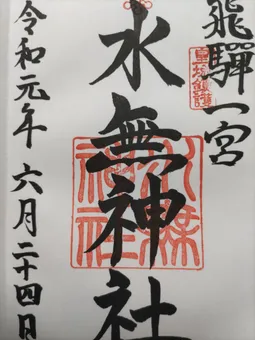 飛驒一宮
水無神社
令和元年 六月二十四日